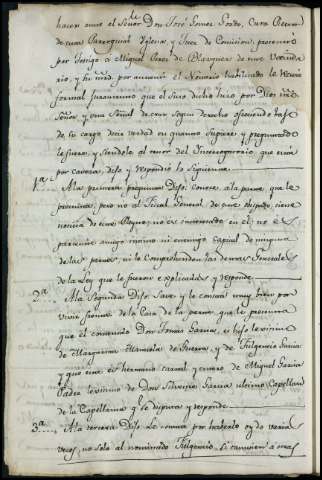 haren ante el Señor Dn José Gomez Pardo, Cura Rector
de esta Parroquial Yglesia, y Juez de Comision, presentó
por testigo a Miguel Perez de Blazquez de este Vecinda
rio, y su mrd. por ante mi el Notario recibió
formal juramento que el suso dicho hizo por Dios nrô
Señor, y una Señal de cruz segun derecho ofreciendo baxo
de su cargo decir verdad en quanto supiere y preguntado
le fuere, y siendolo al tenor del Interrogatorio, que está
por caveza, dixo y respondió lo siguiente
1ª A la primera pregunta Dixo: Conoce a la parte que le
presenta, pero no al Fiscal General de este obispado, tiene
noticia de este Pleyto; no es interesado en el; no es
pariente amigo intimo ni enemigo capital de ninguna
de las partes, ni le comprehenden las demas Generales
de la Ley que le fueron explicadas y responde
2ª A la segunda Dixo: Save y le consta muy bien por
vivir frontero de la Casa de la parte, que le presenta
que el contenido Don Tomas Garcia, es hijo lexitimo
de Margarita Manuela de Herrera, y de Fulgencio Garcia
y que este es hermano carnal y entero de Miguel Garcia
Padre lexitimo de Don Silvestre Garcia ultimo Capellan
de la Capellania q. se disputa y responde
3ª A la tercera Dixo: Le consta por haverlo oydo varias
veces, no solo al nominado Fulgencio, si tambien á otras